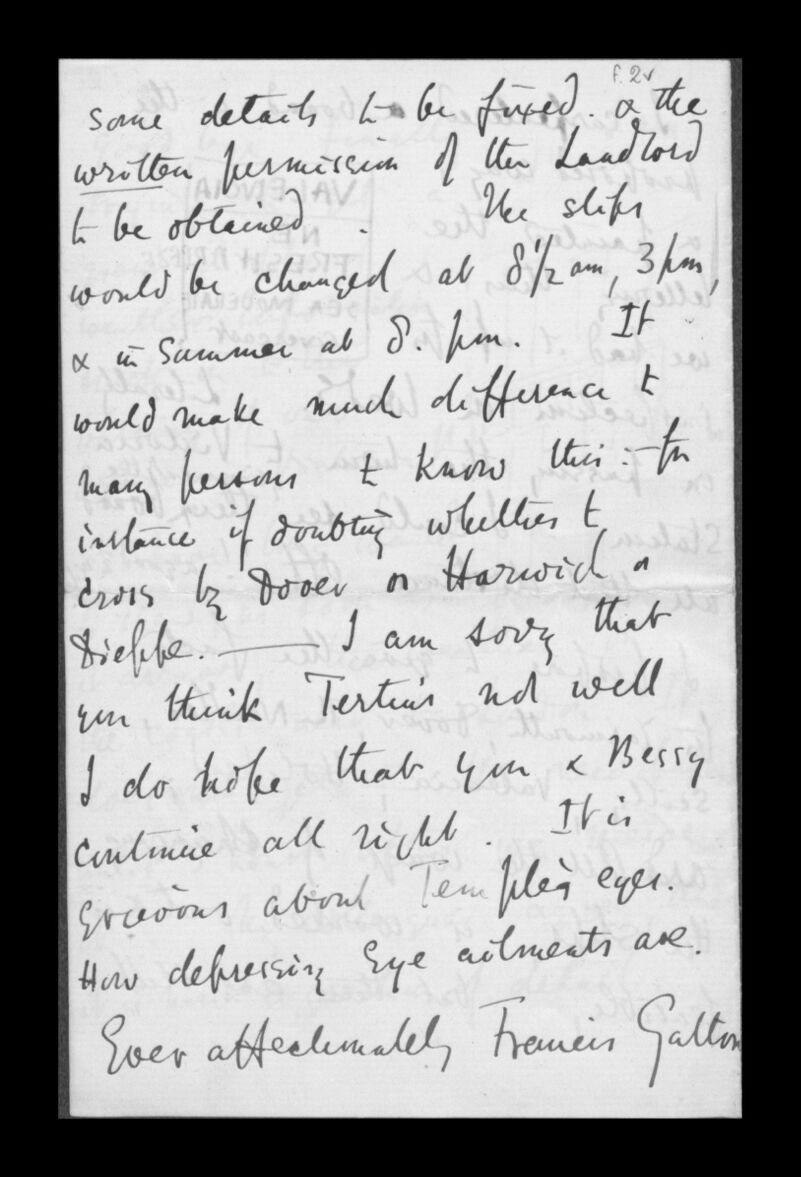 f. 2v
some details to be fixed. & the
written permission of the Landlord
to be obtained. The slips
would be changed at 8½ am, 3 pm,
& in Summer at 8. pm. It
would make much difference to
many persons to know this :- for
instance if doubting whether to
cross by Dover or Harwich or
Dieppe. —— I am sorry that
you think Tertius not well
I do hope that you & Bessy
continue all right. It is
grievous about Temple's eyes.
How depressing Eye ailments are.
Ever affectionately Francis Galton